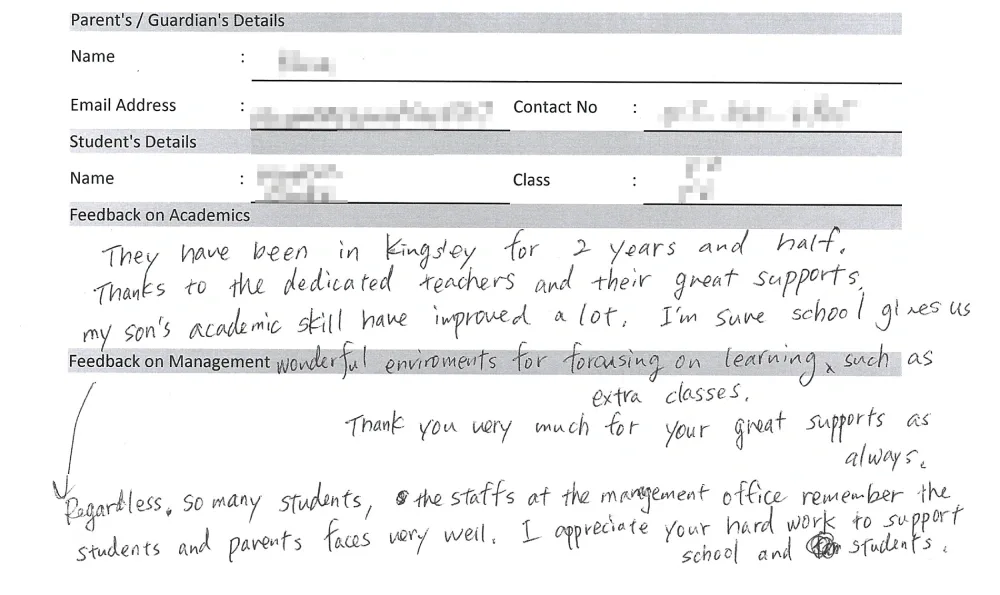 Parent's / Guardian's Details
Name :
Email Address : Contact No :
Student's Details
Name : Class :
Feedback on Academics
They have been in Kingsley for 2 years and half.
Thanks to the dedicated teachers and their great supports,
my son's academic skill have improved a lot. I'm sure school gives us
Feedback on Management wonderful enviroments for forcusing on learning, such as
extra classes.
Thank you very much for your great supports as
always.
Regardless, so many students, the staffs at the management office remember the
students and parents faces very well. I appreciate your hard work to support
school and students.